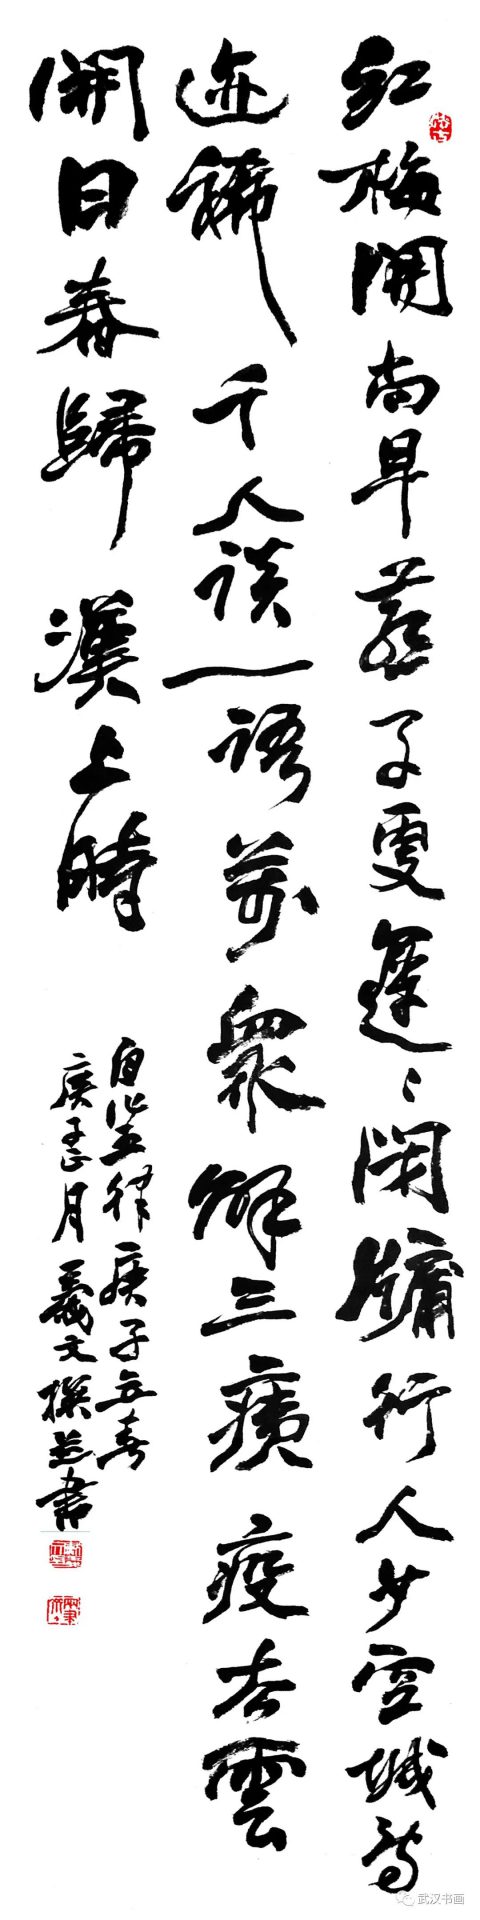 红梅開尚早燕子更遲〻閉牖行人少空城鸟
迹稀千人談一語萬衆解三疫去雲
開日春歸漢上時
自作五律庚子立春
庚子正月義文撰並書
武汉书画